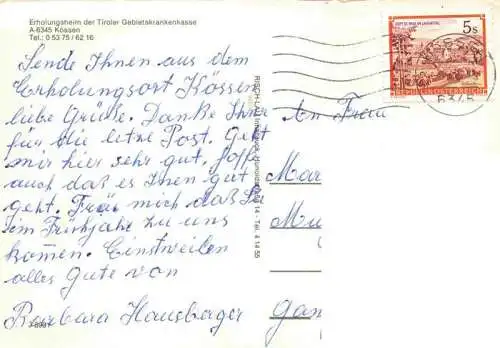 Erholungsheim der Tiroler Gebietskrankenkasse
A-6345 Kössen
Tel.: 0 53 75 / 62 16
Sende Ihnen aus dem
Erholungsort Kössen
liebe Grüße. Danke Ihnen
für die letze Post. Geht
mir hier sehr gut. Hoffe
auch daß es Inen gut
geht. Freu mich daß Sie
im Frühjahr zu uns
komen. Einstweilen
alles Gute von
Barbara Hausberger
RISCH-LAU
Tel. 4 14 55
5s
REPUBLIK ÖSTERREICH
6345
An Frau
Mar
Mu
Gan